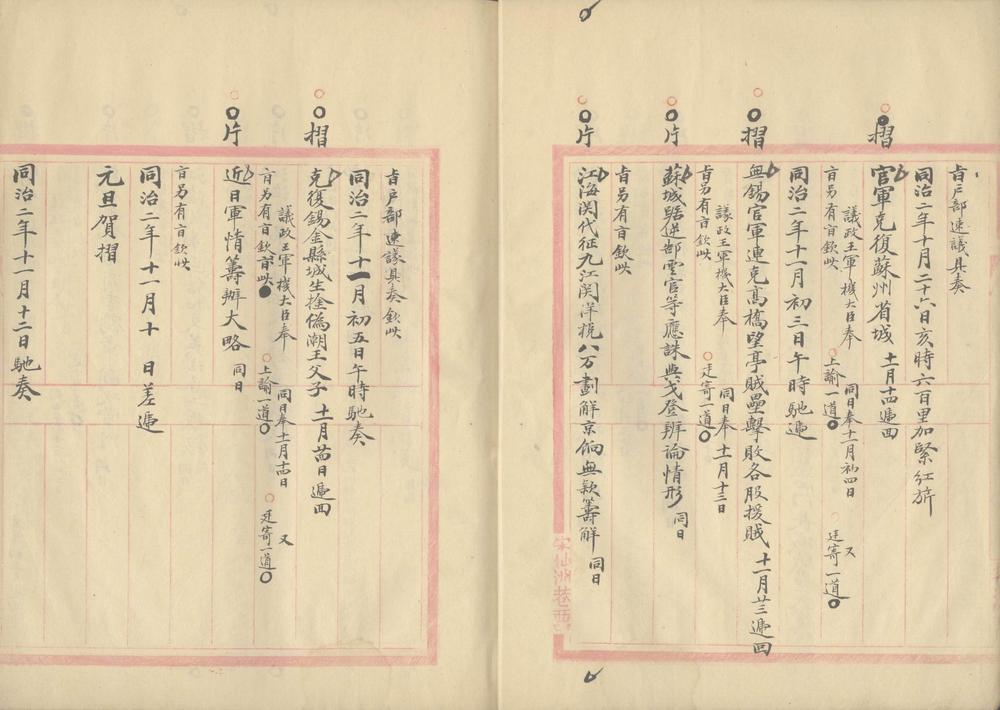 旨戶部速議具奏
同治二年十月二十六日亥時六百里加緊紅旂
摺
官軍克復蘇州省城 十一月十四遞回
議政王軍機大臣奉 同日奉十一月初四日 又
旨另有旨欽此 上諭一道 廷寄一道
同治二年十一月初三日午時馳遞
摺
無錫官軍連克高橋望亭賊壘擊敗各股援賊 十一月廿三遞回
議政王軍機大臣奉 同日奉十一月十三日
旨另有旨欽此 廷寄一道
片
蘇城踞逆郜雲官等應誅與戈登辨論情形 同日
旨另有旨欽此
片
江海関代征九江関洋稅八万劃解京餉無款籌解 同日
宋仙洲巷西
旨戶部速議具奏欽此
同治二年十一月初五日午時馳奏
摺
克復錫金縣城生擒偽潮王父子 十一月廿四日遞回
議政王軍機大臣奉 同日奉十一月十四日 又
旨另有旨欽此 上諭一道 廷寄一道
片
近日軍情籌辦大略 同日
旨另有旨欽此
同治二年十一月十 日差遞
元旦賀摺
同治二年十一月十二日馳奏